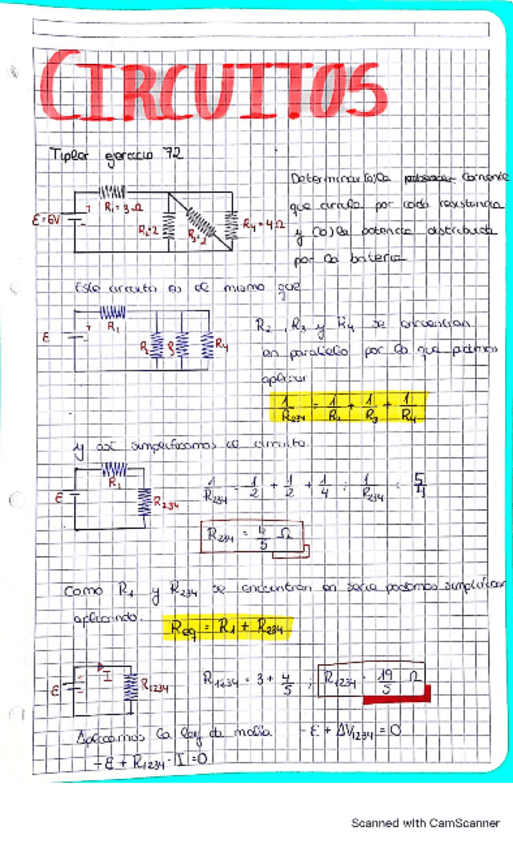 CIRCUITOS
Tipler ejercicio 72
Determinar (a) la corriente
que circula por cada resistencia
y (b) la potencia distribuida
por la batería
ε=6V
R₁=3Ω
R₂=2
R₃=2
R₄=4Ω
Este circuito es el mismo que
ε
R₁
R₂
R₃
R₄
R₂, R₃ y R₄ se encuentran
en paralelo por lo que podemos
aplicar
1/R₂₃₄ = 1/R₂ + 1/R₃ + 1/R₄
y así simplificamos el circuito.
ε
R₁
R₂₃₄
1/R₂₃₄ = 1/2 + 1/2 + 1/4 ; 1/R₂₃₄ = 5/4
R₂₃₄ = 4/5 Ω
Como R₁ y R₂₃₄ se encuentran en serie podemos simplificar
aplicando.
Req = R₁ + R₂₃₄
ε
I
R₁₂₃₄
R₁₂₃₄ = 3 + 4/5 ; R₁₂₃₄ = 19/5 Ω
Aplicamos la ley de malla - ε + ΔV₁₂₃₄ = 0
- ε + R₁₂₃₄ · I = 0
Scanned with CamScanner